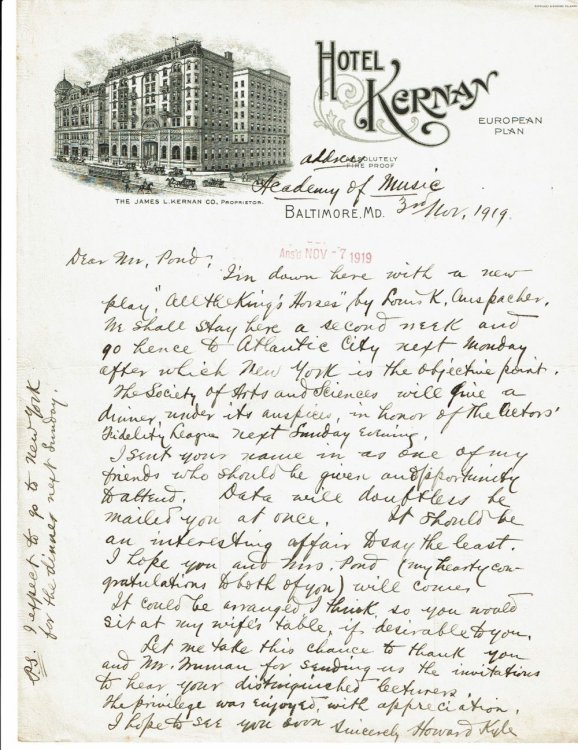 HOTEL
KERNAN
EUROPEAN
PLAN
ABSOLUTELY
FIRE PROOF
address
Academy of Music
THE JAMES L. KERNAN CO. PROPRIETOR.
BALTIMORE, MD. 3rd Nov, 1919.
Ans'd NOV - 7 1919
Dear Mr. Pond:
I'm down here with a new
play, "All the King's Horses", by Louis K. Anspacher.
We shall stay here a second week and
go hence to Atlantic City next Monday
after which New York is the objective point.
The Society of Arts and Sciences will give a
dinner, under its auspices, in honor of the Actors'
Fidelity League next Sunday evening.
I sent your name in as one of my
friends who should be given an opportunity
to attend. Data will doubtless be
mailed you at once. It should be
an interesting affair to say the least.
I hope you and Mrs. Pond (my hearty con-
gratulations to both of you) will come.
It could be arranged I think, so you would
sit at my wife's table, if desirable to you.
Let me take this chance to thank you
and Mr. Inman for sending us the invitations
to hear your distinguished lecturers.
The privilege was enjoyed, with appreciation.
I hope to see you soon Sincerely Howard Kyle
P.S. I expect to go to New York
for the dinner next Sunday.